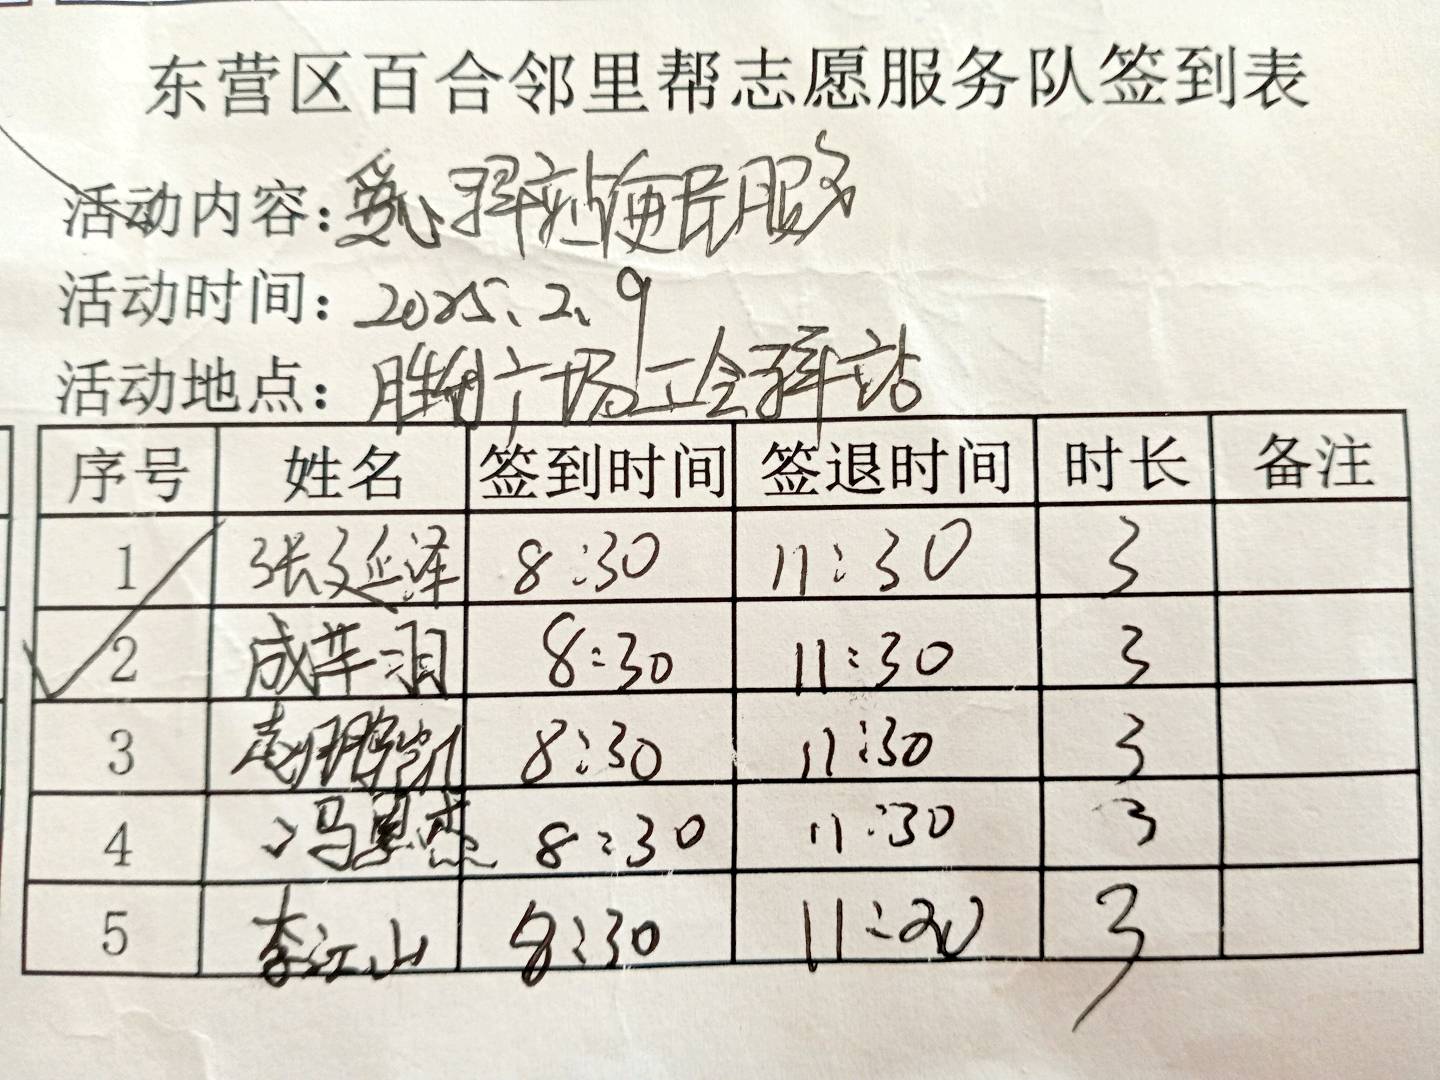 东营区百合邻里帮志愿服务队签到表
活动内容：爱心驿站便民服务
活动时间：2025.2.9
活动地点：胜利广场工会驿站
序号 姓名 签到时间 签退时间 时长 备注
1 张延泽 8:30 11:30 3
2 成芊羽 8:30 11:30 3
3 8:30 11:30 3
4 冯思杰 8:30 11:30 3
5 李江山 8:30 11:30 3